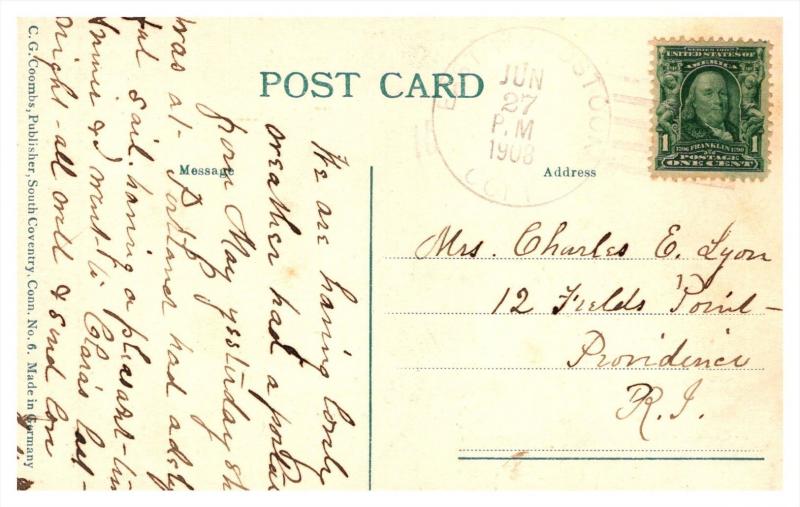 POST CARD
Message
Address
JUN
27
P.M
1908
CONN
SERIES 1902
UNITED STATES OF
AMERICA
1 1706 FRANKLIN 1790 1
POSTAGE
ONE CENT
Mrs. Charles E. Lyon
12 Fields Point-
Providence
R.I.
We are having lovely
weather had a postal
from May yesterday She
was at- Portland had a delight
ful sail. having a pleasant- time
& I went- to Clara's last-
night- all well & send love
C. G. Coombs, Publisher, South Coventry, Conn. No. 6. Made in Germany